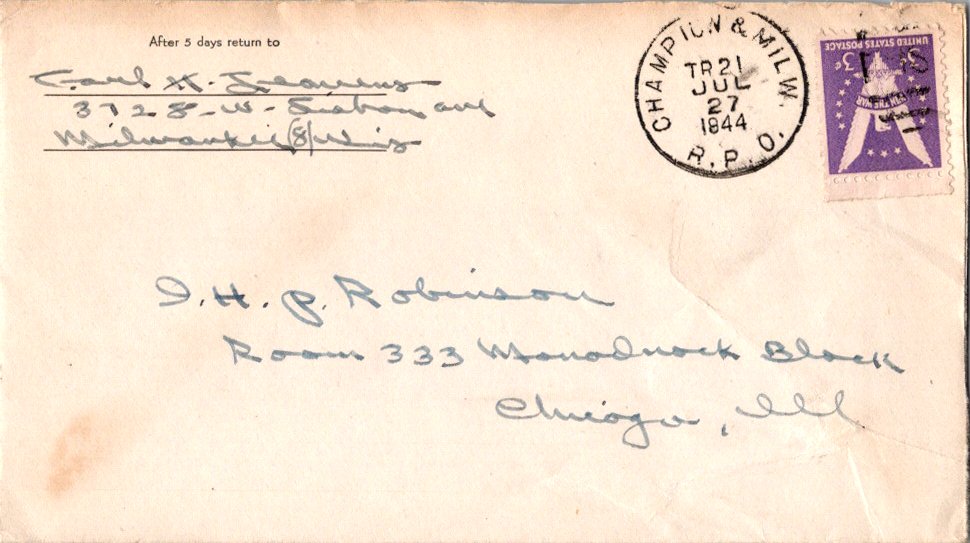 After 5 days return to
Carl H.
3728 - W -
Milwaukee (8) Wis
CHAMPION & MILW.
TR 21
JUL
27
1844
R.P.O.
UNITED STATES POSTAGE
3¢ 3¢
WIN THE WAR
I. H. P. Robinson
Room 333 Monadnock Block
Chicago, Ill